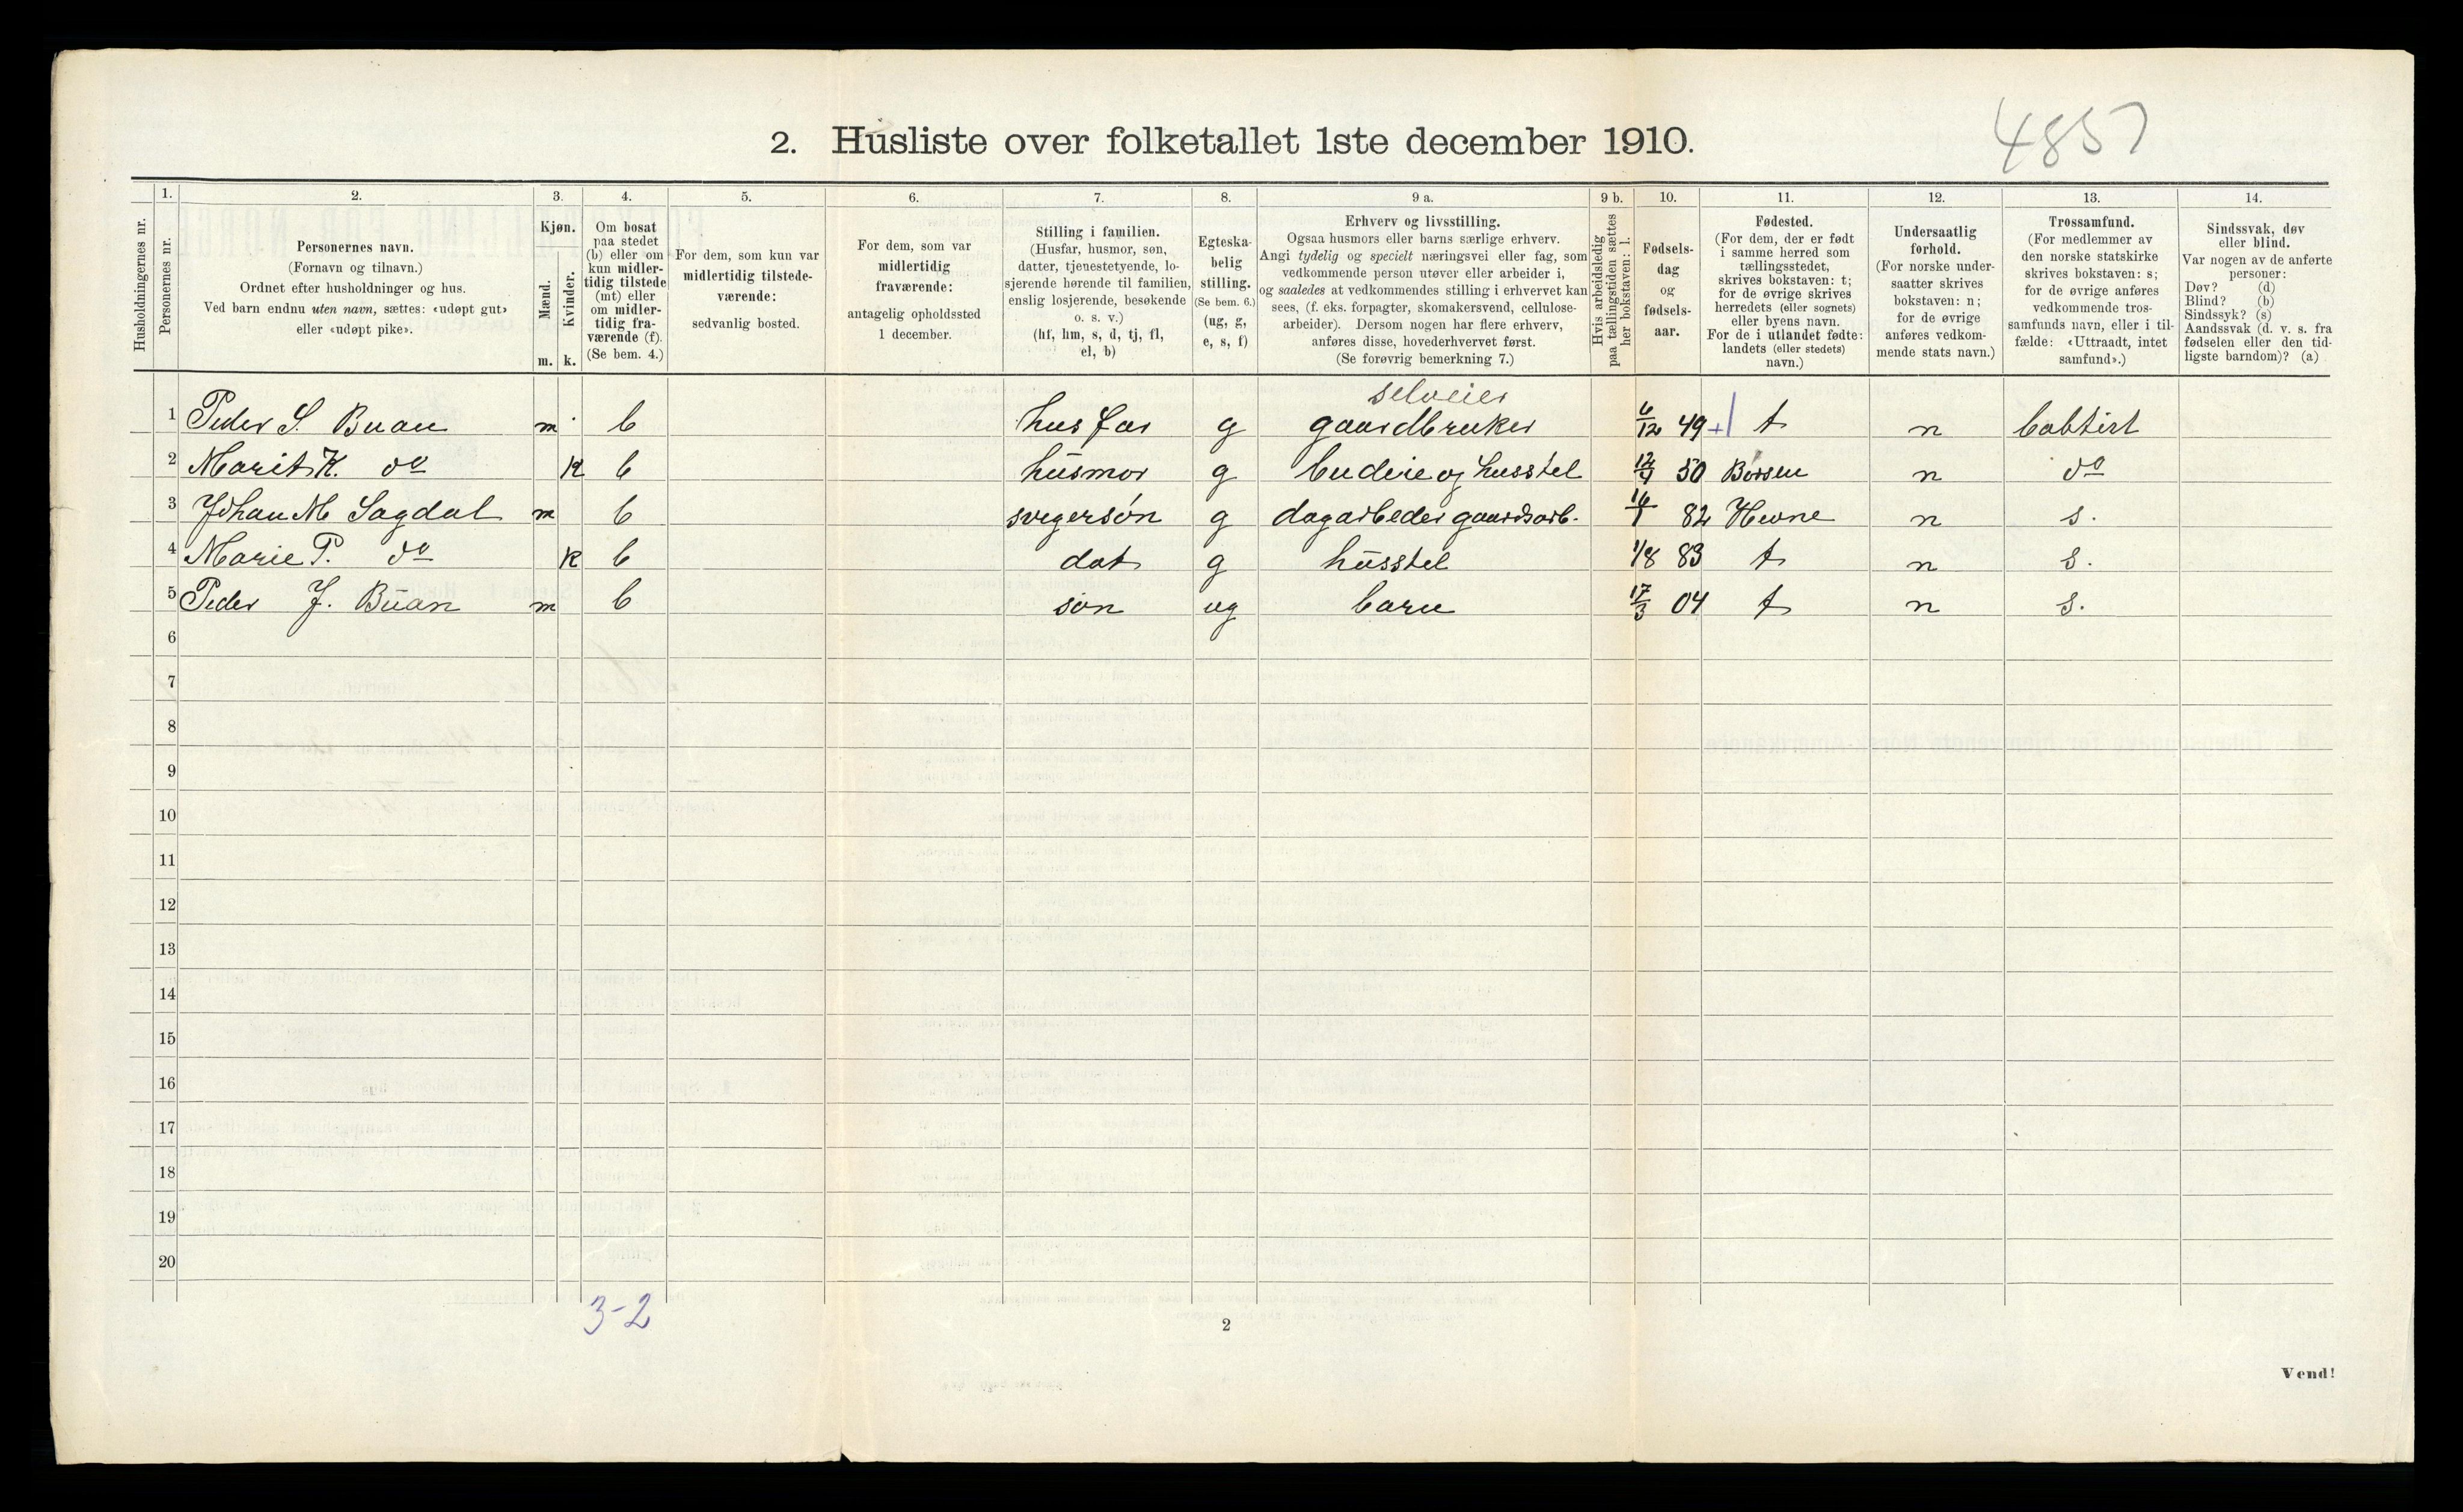 2. Husliste over folketallet 1ste december 1910.
4857
Husholdningernes nr.
1.
Personernes nr.
2.
Personernes navn.
(Fornavn og tilnavn.)
Ordnet efter husholdninger og hus.
Ved barn endnu uten navn, sættes: «udøpt gut»
eller «udøpt pike».
3.
Kjøn.
Mænd.
Kvinder.
m. k.
4.
Om bosat
paa stedet
(b) eller om
kun midler-
tidig tilstede
(mt) eller
om midler-
tidig fra-
værende (f).
(Se bem. 4.)
5.
For dem, som kun var
midlertidig tilstede-
værende:
sedvanlig bosted.
6.
For dem, som var
midlertidig
fraværende:
antagelig opholdssted
1 december.
7.
Stilling i familien.
(Husfar, husmor, søn,
datter, tjenestetyende, lo-
sjerende hørende til familien,
enslig losjerende, besøkende
o. s. v.)
(hf, hm, s, d, tj, fl,
el, b)
8.
Egteska-
belig
stilling.
(Se bem. 6.)
(ug, g,
e, s, f)
9 a.
Erhverv og livsstilling.
Ogsaa husmors eller barns særlige erhverv.
Angi tydelig og specielt næringsvei eller fag, som
vedkommende person utøver eller arbeider i,
og saaledes at vedkommendes stilling i erhvervet kan
sees, (f. eks. forpagter, skomakersvend, cellulose-
arbeider). Dersom nogen har flere erhverv,
anføres disse, hovederhvervet først.
(Se forøvrig bemerkning 7.)
9 b.
Hvis arbeidsledig
paa tællingstiden sættes
her bokstaven: l.
10.
Fødsels-
dag
og
fødsels-
aar.
11.
Fødested.
(For dem, der er født
i samme herred som
tællingsstedet,
skrives bokstaven: t;
for de øvrige skrives
herredets (eller sognets)
eller byens navn.
For de i utlandet fødte:
landets (eller stedets)
navn.)
12.
Undersaatlig
forhold.
(For norske under-
saatter skrives
bokstaven: n;
for de øvrige
anføres vedkom-
mende stats navn.)
13.
Trossamfund.
(For medlemmer av
den norske statskirke
skrives bokstaven: s;
for de øvrige anføres
vedkommende tros-
samfunds navn, eller i til-
fælde: «Uttraadt, intet
samfund».)
14.
Sindssvak, døv
eller blind.
Var nogen av de anførte
personer:
Døv? (d)
Blind? (b)
Sindssyk? (s)
Aandssvak (d. v. s. fra
fødselen eller den tid-
ligste barndom)? (a)
selveier
1 Peder S. Buan m b husfar g gaardbruker 6/12 49 + t n babtist
2 Marit K. do k b husmor g budeie og husstel 12/9 50 Børsen n do
3 Johan M Sagdal m b svigersøn g dagarbeder gaardsarb. 16/1 82 Hevne n s.
4 Marie P. do k b dat g husstel 1/8 83 t n s.
5 Peder J. Buan m b søn ug barn 17/3 04 t n s.
6
7
8
9
10
11
12
13
14
15
16
17
18
19
20
3-2
2
Vend!